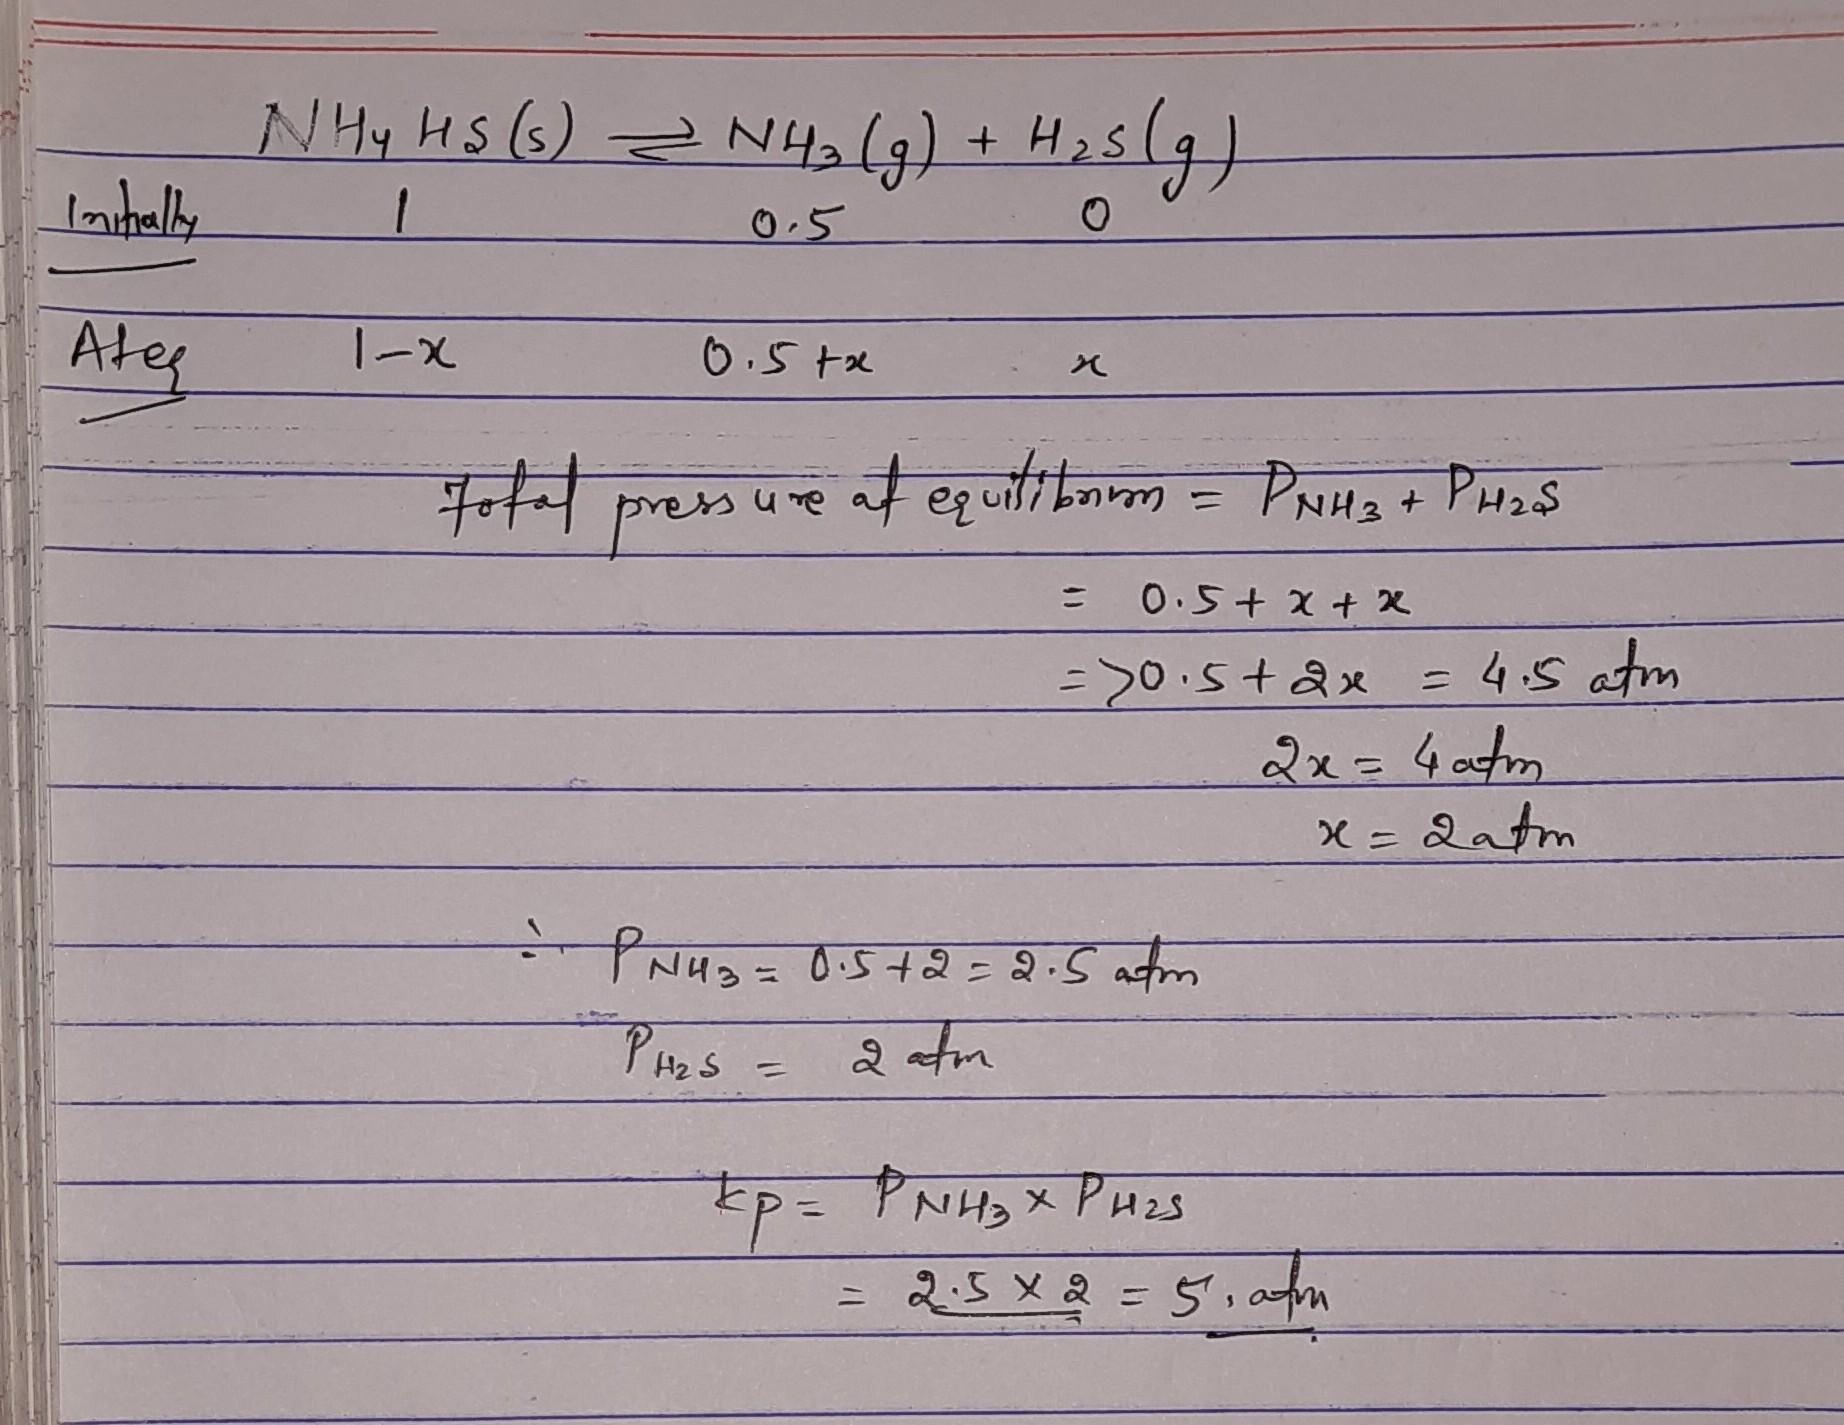 NH4HS(s) ⇌ NH3(g) + H2S(g)
Initially 1 0.5 0
At eq 1-x 0.5+x x
Total pressure at equilibrium = PNH3 + PH2S
= 0.5 + x + x
=> 0.5 + 2x = 4.5 atm
2x = 4 atm
x = 2 atm
∴ PNH3 = 0.5+2 = 2.5 atm
PH2S = 2 atm
kp = PNH3 x PH2S
= 2.5 x 2 = 5. atm